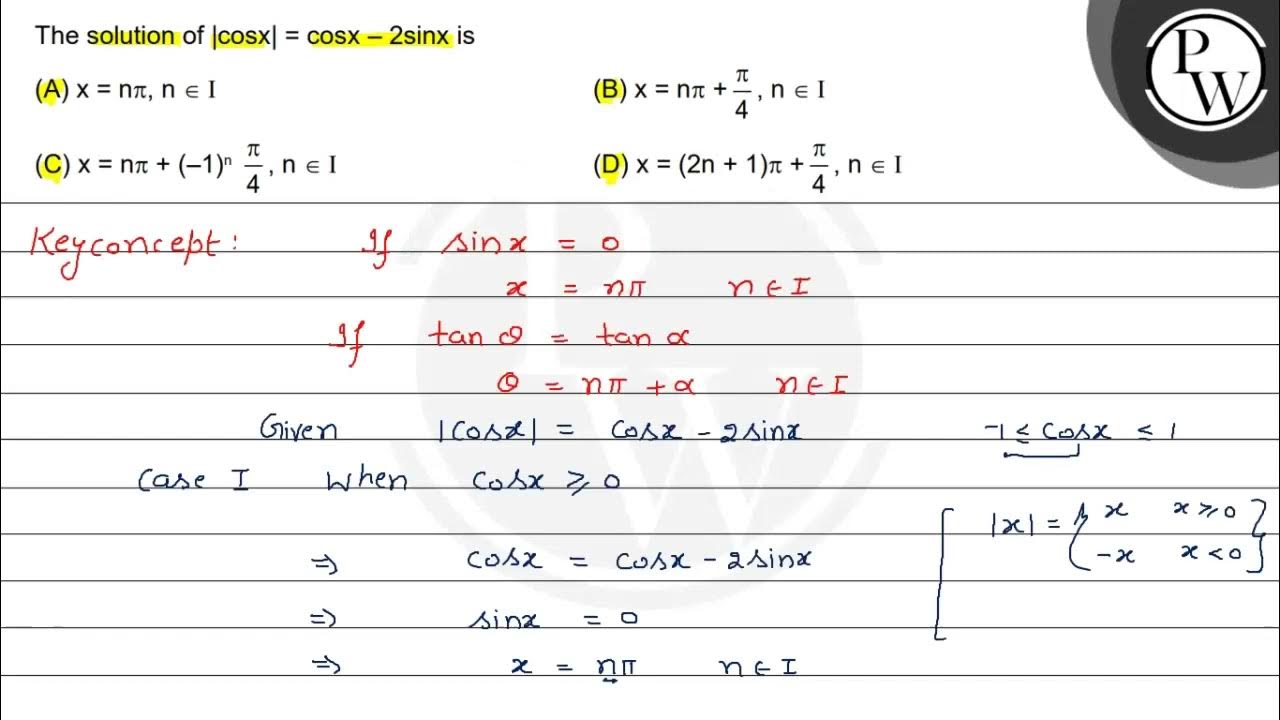 The solution of |cosx| = cosx – 2sinx is
(A) x = nπ, n ∈ I
(B) x = nπ + π/4 , n ∈ I
(C) x = nπ + (–1)ⁿ π/4 , n ∈ I
(D) x = (2n + 1)π + π/4 , n ∈ I
P
W
Key concept : If sinx = 0
x = nπ n ∈ I
If tan θ = tan α
θ = nπ + α n ∈ I
Given |cosx| = cosx - 2sinx -1 ≤ cosx ≤ 1
Case I When cosx ≥ 0
|x| = { x x ≥ 0
-x x < 0 }
⇒ cosx = cosx - 2sinx
⇒ sinx = 0
⇒ x = nπ n ∈ I